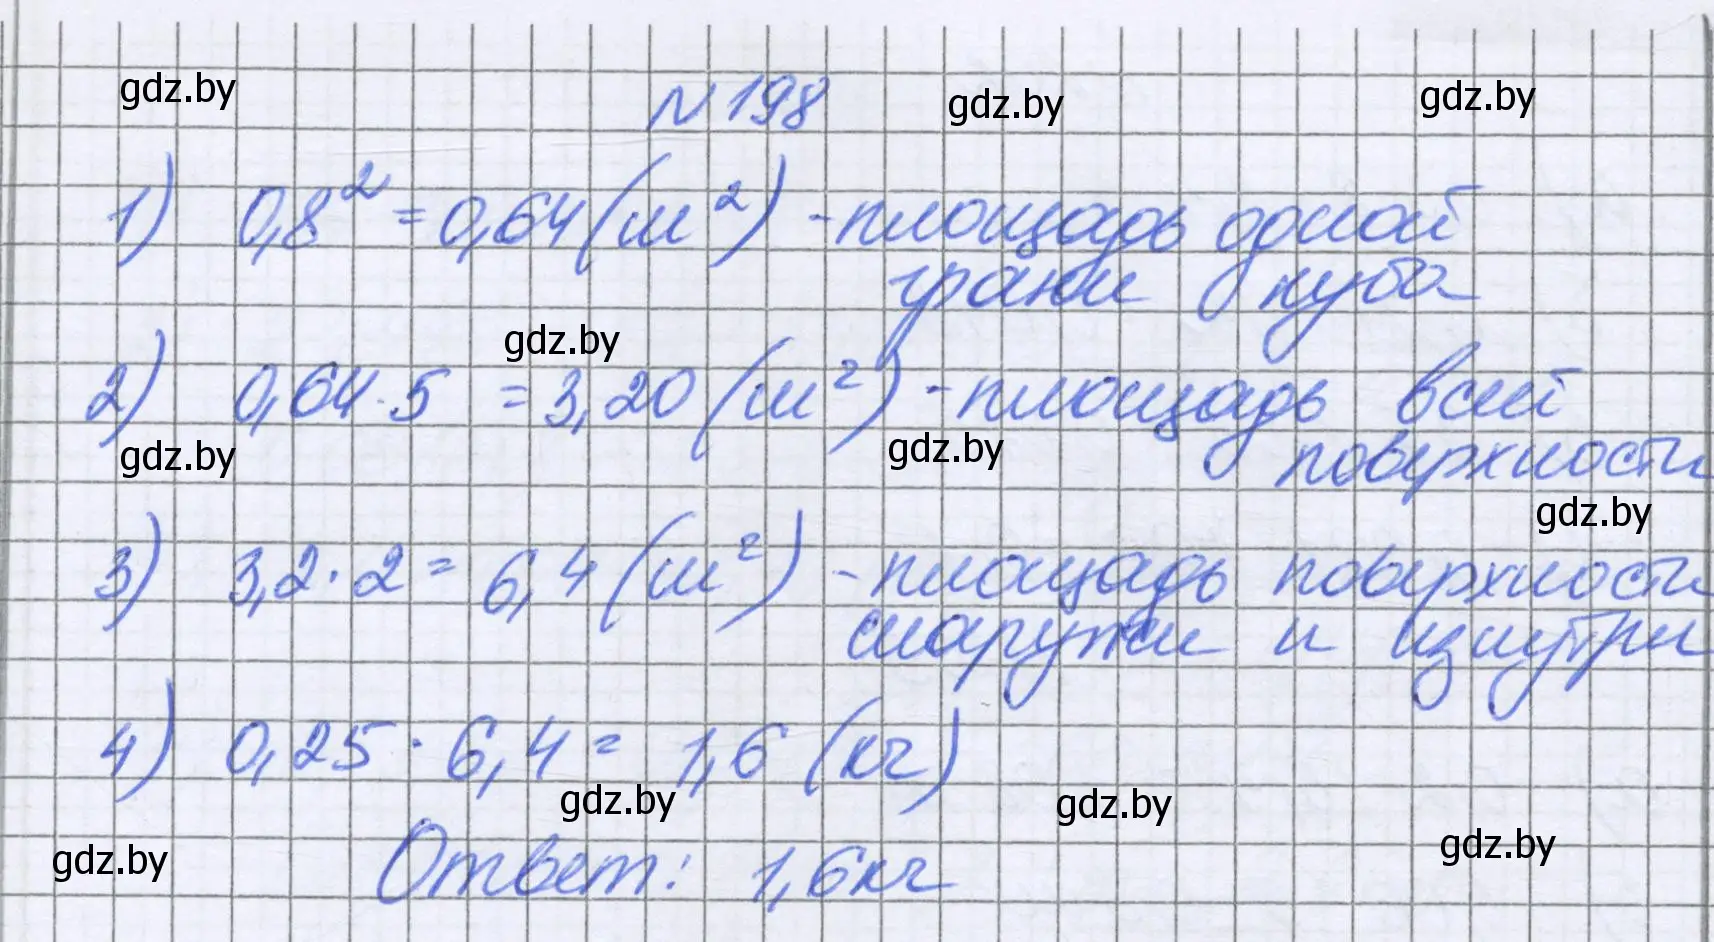 gdz.by № 198 gdz.by gdz.by
1) 0,8² = 0,64 (м²) - площадь одной
грани куба
gdz.by
2) 0,64 · 5 = 3,20 (м²) - площадь всей
gdz.by gdz.by поверхности
gdz.by
3) 3,2 · 2 = 6,4 (м²) - площадь поверхности
снаружи и изнутри
4) 0,25 · 6,4 = 1,6 (кг)
gdz.by gdz.by
gdz.by Ответ: 1,6 кг gdz.by